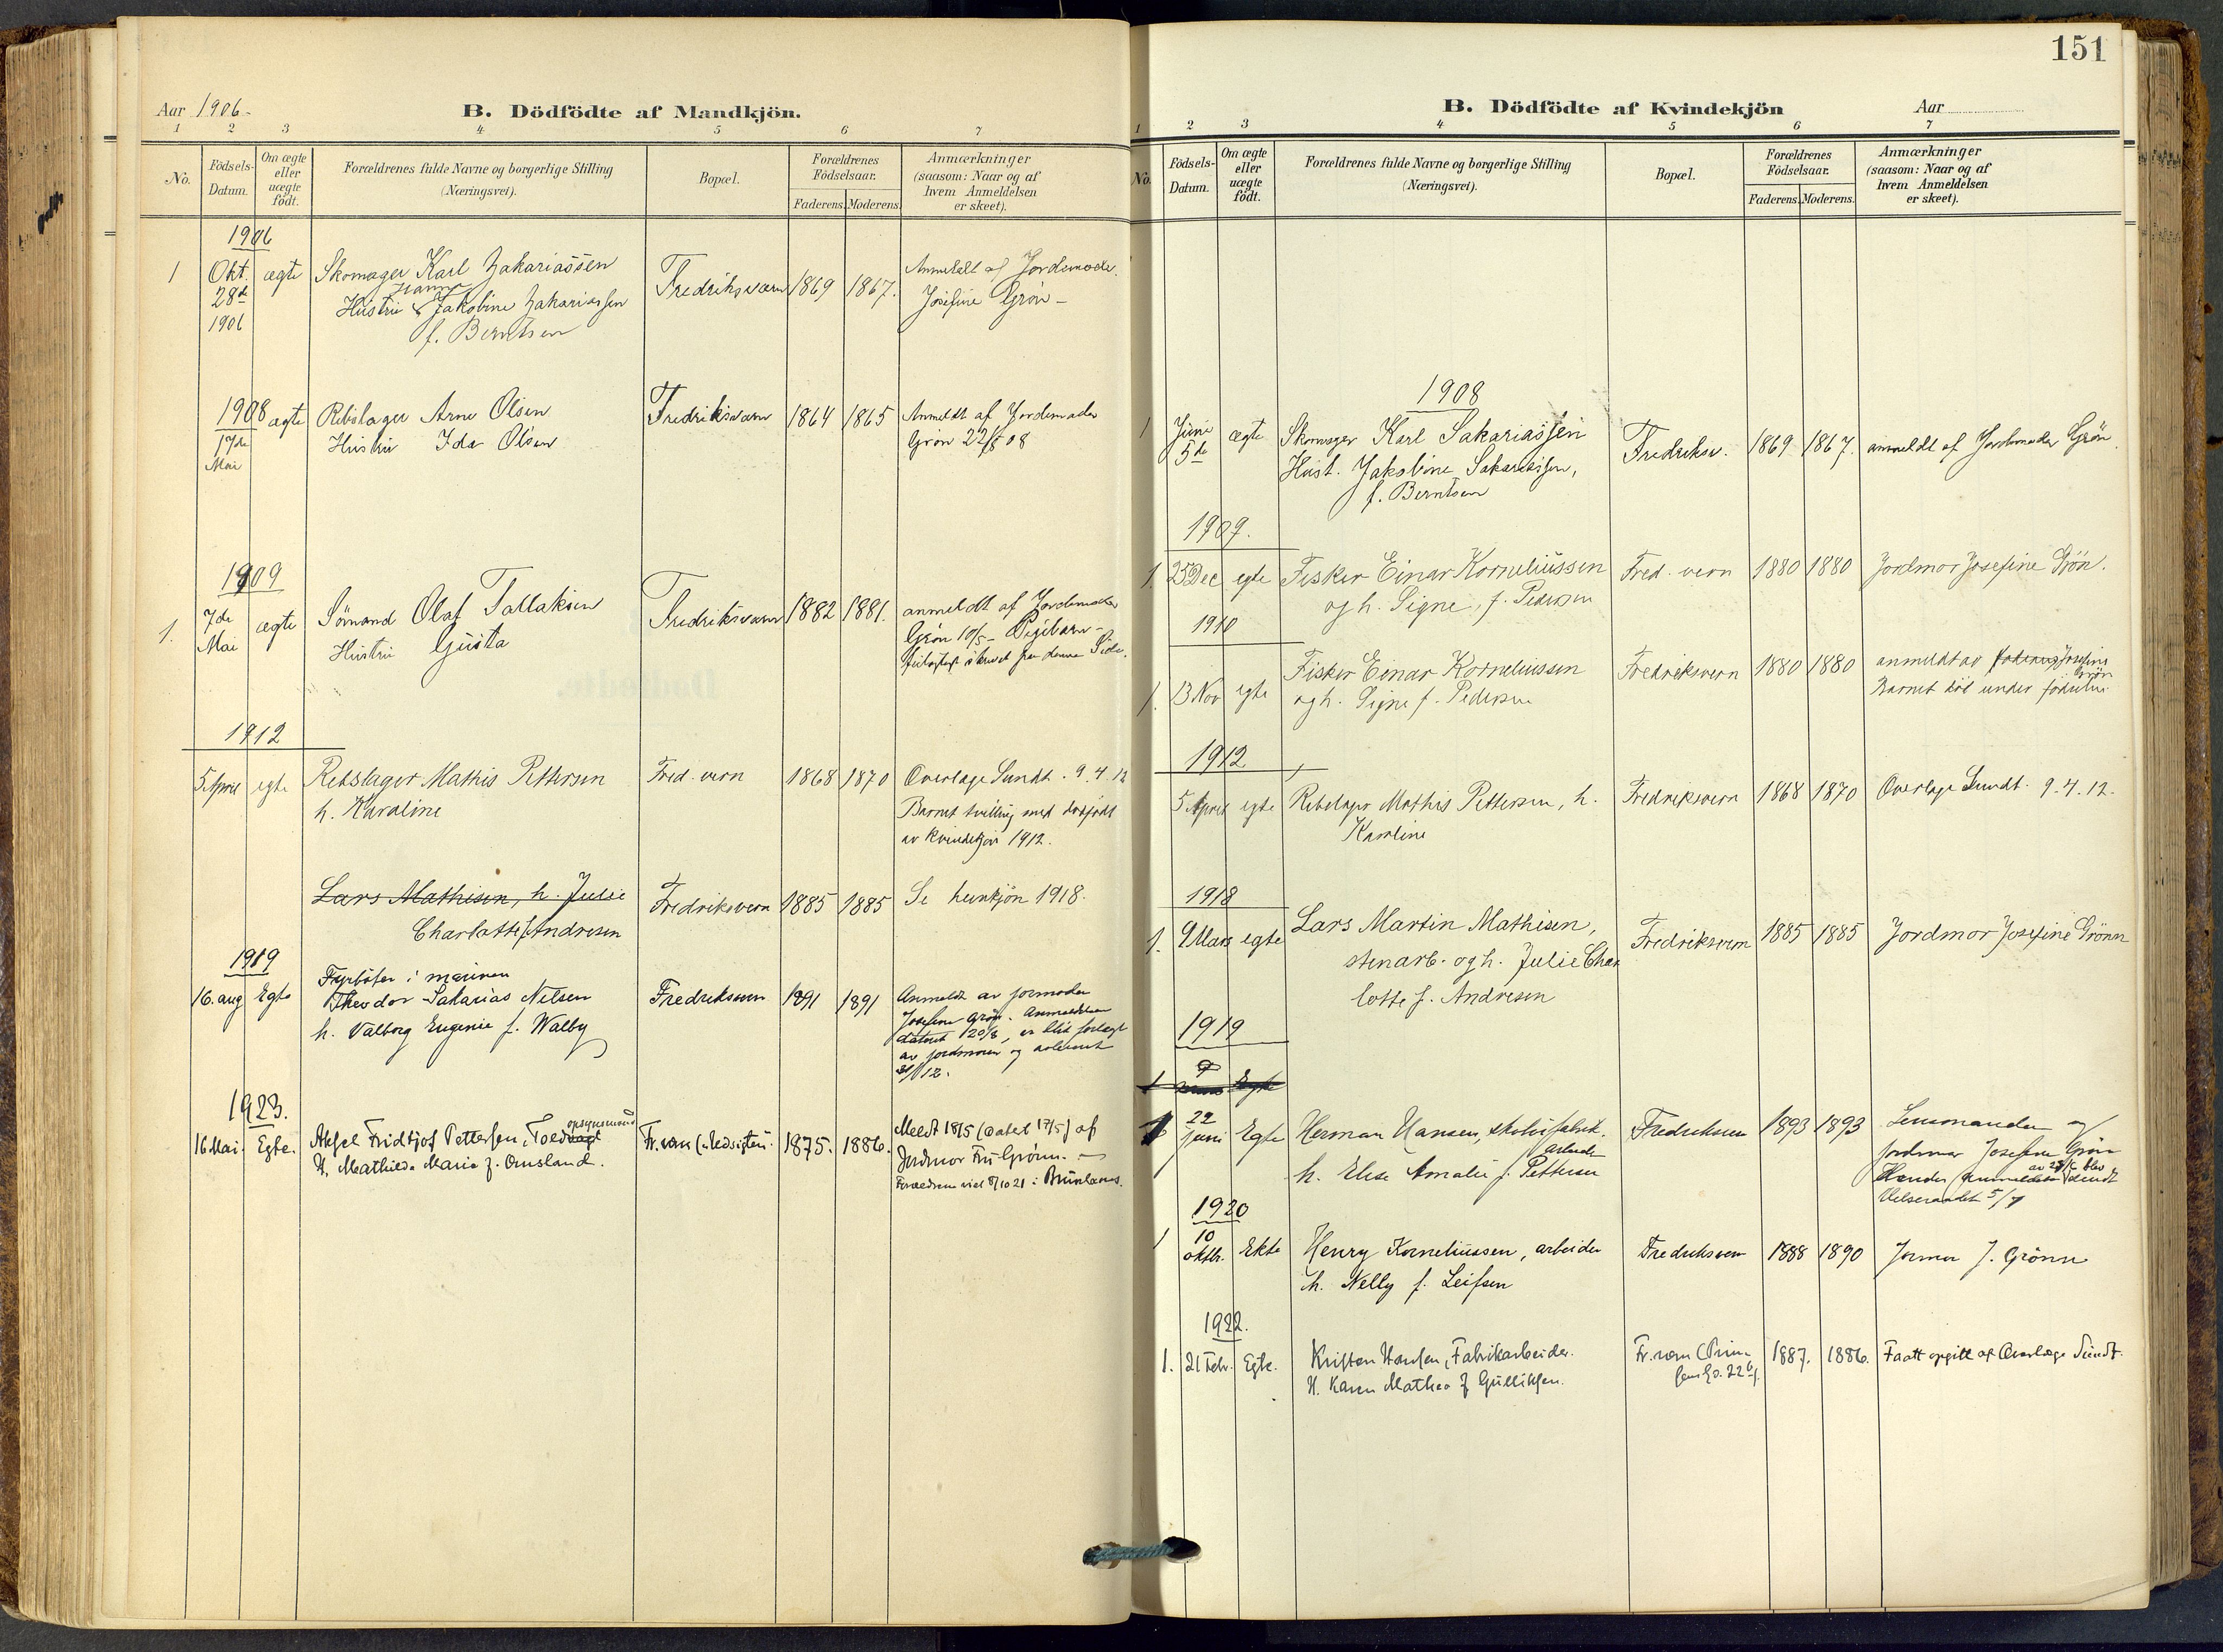 Aar 1906.
B. Dödfödte af Mandkjön.
1 2 3 4 5 6 7
No.
Födsels-Datum.
Om ægte eller uægte födt.
Forældrenes fulde Navne og borgerlige Stilling (Næringsvei).
Bopæl.
Forældrenes Födselsaar.
Faderens. Moderens.
Anmærkninger (saasom: Naar og af hvem Anmeldelsen er skeet).
1906
1 Okt. 28de 1906 ægte Skomager Karl Zakariassen Fredriksværn 1869 1867. Anmeldt af Jordemoder
Hustru Jakobine Zakariassen Josefine Grøn -
f. Berntsen
1908 ægte Rebslager Arne Olsen Fredriksværn 1864 1865 Anmeldt af Jordemoder
17de Mai Hustru Ida Olsen Grøn 22/5 08
1909
1. 7de Mai ægte Sömand Olaf Tallaksen Fredriksværn 1882 1881. anmeldt af Jordemoder
Hustru Gusta Grøn 10/5 - Pigebarn -
feilagtigt skrevet paa denne Side.
1912
5 April egte Rebslager Mathis Pettersen Fred. vern 1868 1870 Overlæge Sundt. 9.4.12
h. Karoline Barnet tvilling med dødfödt
av kvindekjön 1912.
Lars Mathisen, h. Julie Fredriksvern 1885 1885 Se kvinkjön 1918.
Charlotte f. Andresen
1919
Fyrböter i marinen
16. aug Egte Theodor Sakarias Nilsen Fredriksvern 1891 1891 Anmeldt av jormoder
h. Valborg Eugenie f. Walby Josefine Grøn. Anmeldelsen
datert 20/8, er blit forlagt
av jordmoren og avlevert
31/12.
1923.
opsynsmand
16 Mai. Egte. Aksel Fridtjof Pettersen, Toldvagt Fr.værn (Nedsigten. 1875. 1886. Meldt 18/5 (datet 17/5) af
H. Mathilde Marie f. Omsland. Jordmor Fru Grönn. -
Foreldrene viet 8/10 21 i Brunlanes.
151
B. Dödfödte af Kvindekjön
Aar
1 2 3 4 5 6 7
No.
Födsels-Datum.
Om ægte eller uægte födt.
Forældrenes fulde Navne og borgerlige Stilling (Næringsvei).
Bopæl.
Forældrenes Födselsaar.
Faderens. Moderens.
Anmærkninger (saasom: Naar og af hvem Anmeldelsen er skeet).
1908
1 Juni 5te ægte Skomager Karl Sakariassen Fredriksv. 1869 1867. anmeldt af Jordemoder Grøn.
Hust. Jakobine Sakariassen,
f. Berntsen
1909.
1. 25 Dec egte Fisker Einar Korneliussen Fred. vern 1880 1880 Jordmor Josefine Grön.
og h. Signe, f. Pedersen
1910
1. 13 Nov egte Fisker Einar Korneliussen Fredriksvern 1880 1880 anmeldt av Josefine Grön
og h. Signe f. Pedersen Barnet död under födselen.
1912
5 April egte Rebslager Mathis Pettersen, h. Fredriksvern 1868 1870 Overlæge Sundt. 9.4.12.
Karoline
1918
1. 9 Mars egte Lars Martin Mathisen, Fredriksvern 1885 1885 Jordmor Josefine Grönn
stenarb. og h. Julie Char
lotte f. Andresen
1919
1 9 Egte
1 22 juni Egte Herman Hansen, skotöifabrik. Fredriksvern 1893 1893 Lensmanden og
arbeider
h. Elise Amalie f. Pettersen jordmor Josefine Grön
Hendes anmeldelse av 23/6 blev sendt
Helseraadet 5/7
1920
1 10 oktbr. Ekte Henry Korneliussen, arbeider Fredriksvern 1888 1890 Jormor J. Grönn
h. Nelly f. Leifsen
1922.
1. 21 Febr. Egte. Kristen Hansen, Fabrikarbeider. Fr.værn 1887. 1886. Faatt opgitt af Overlæge Sundt.
H. Karen Mathea f Gulliksen.